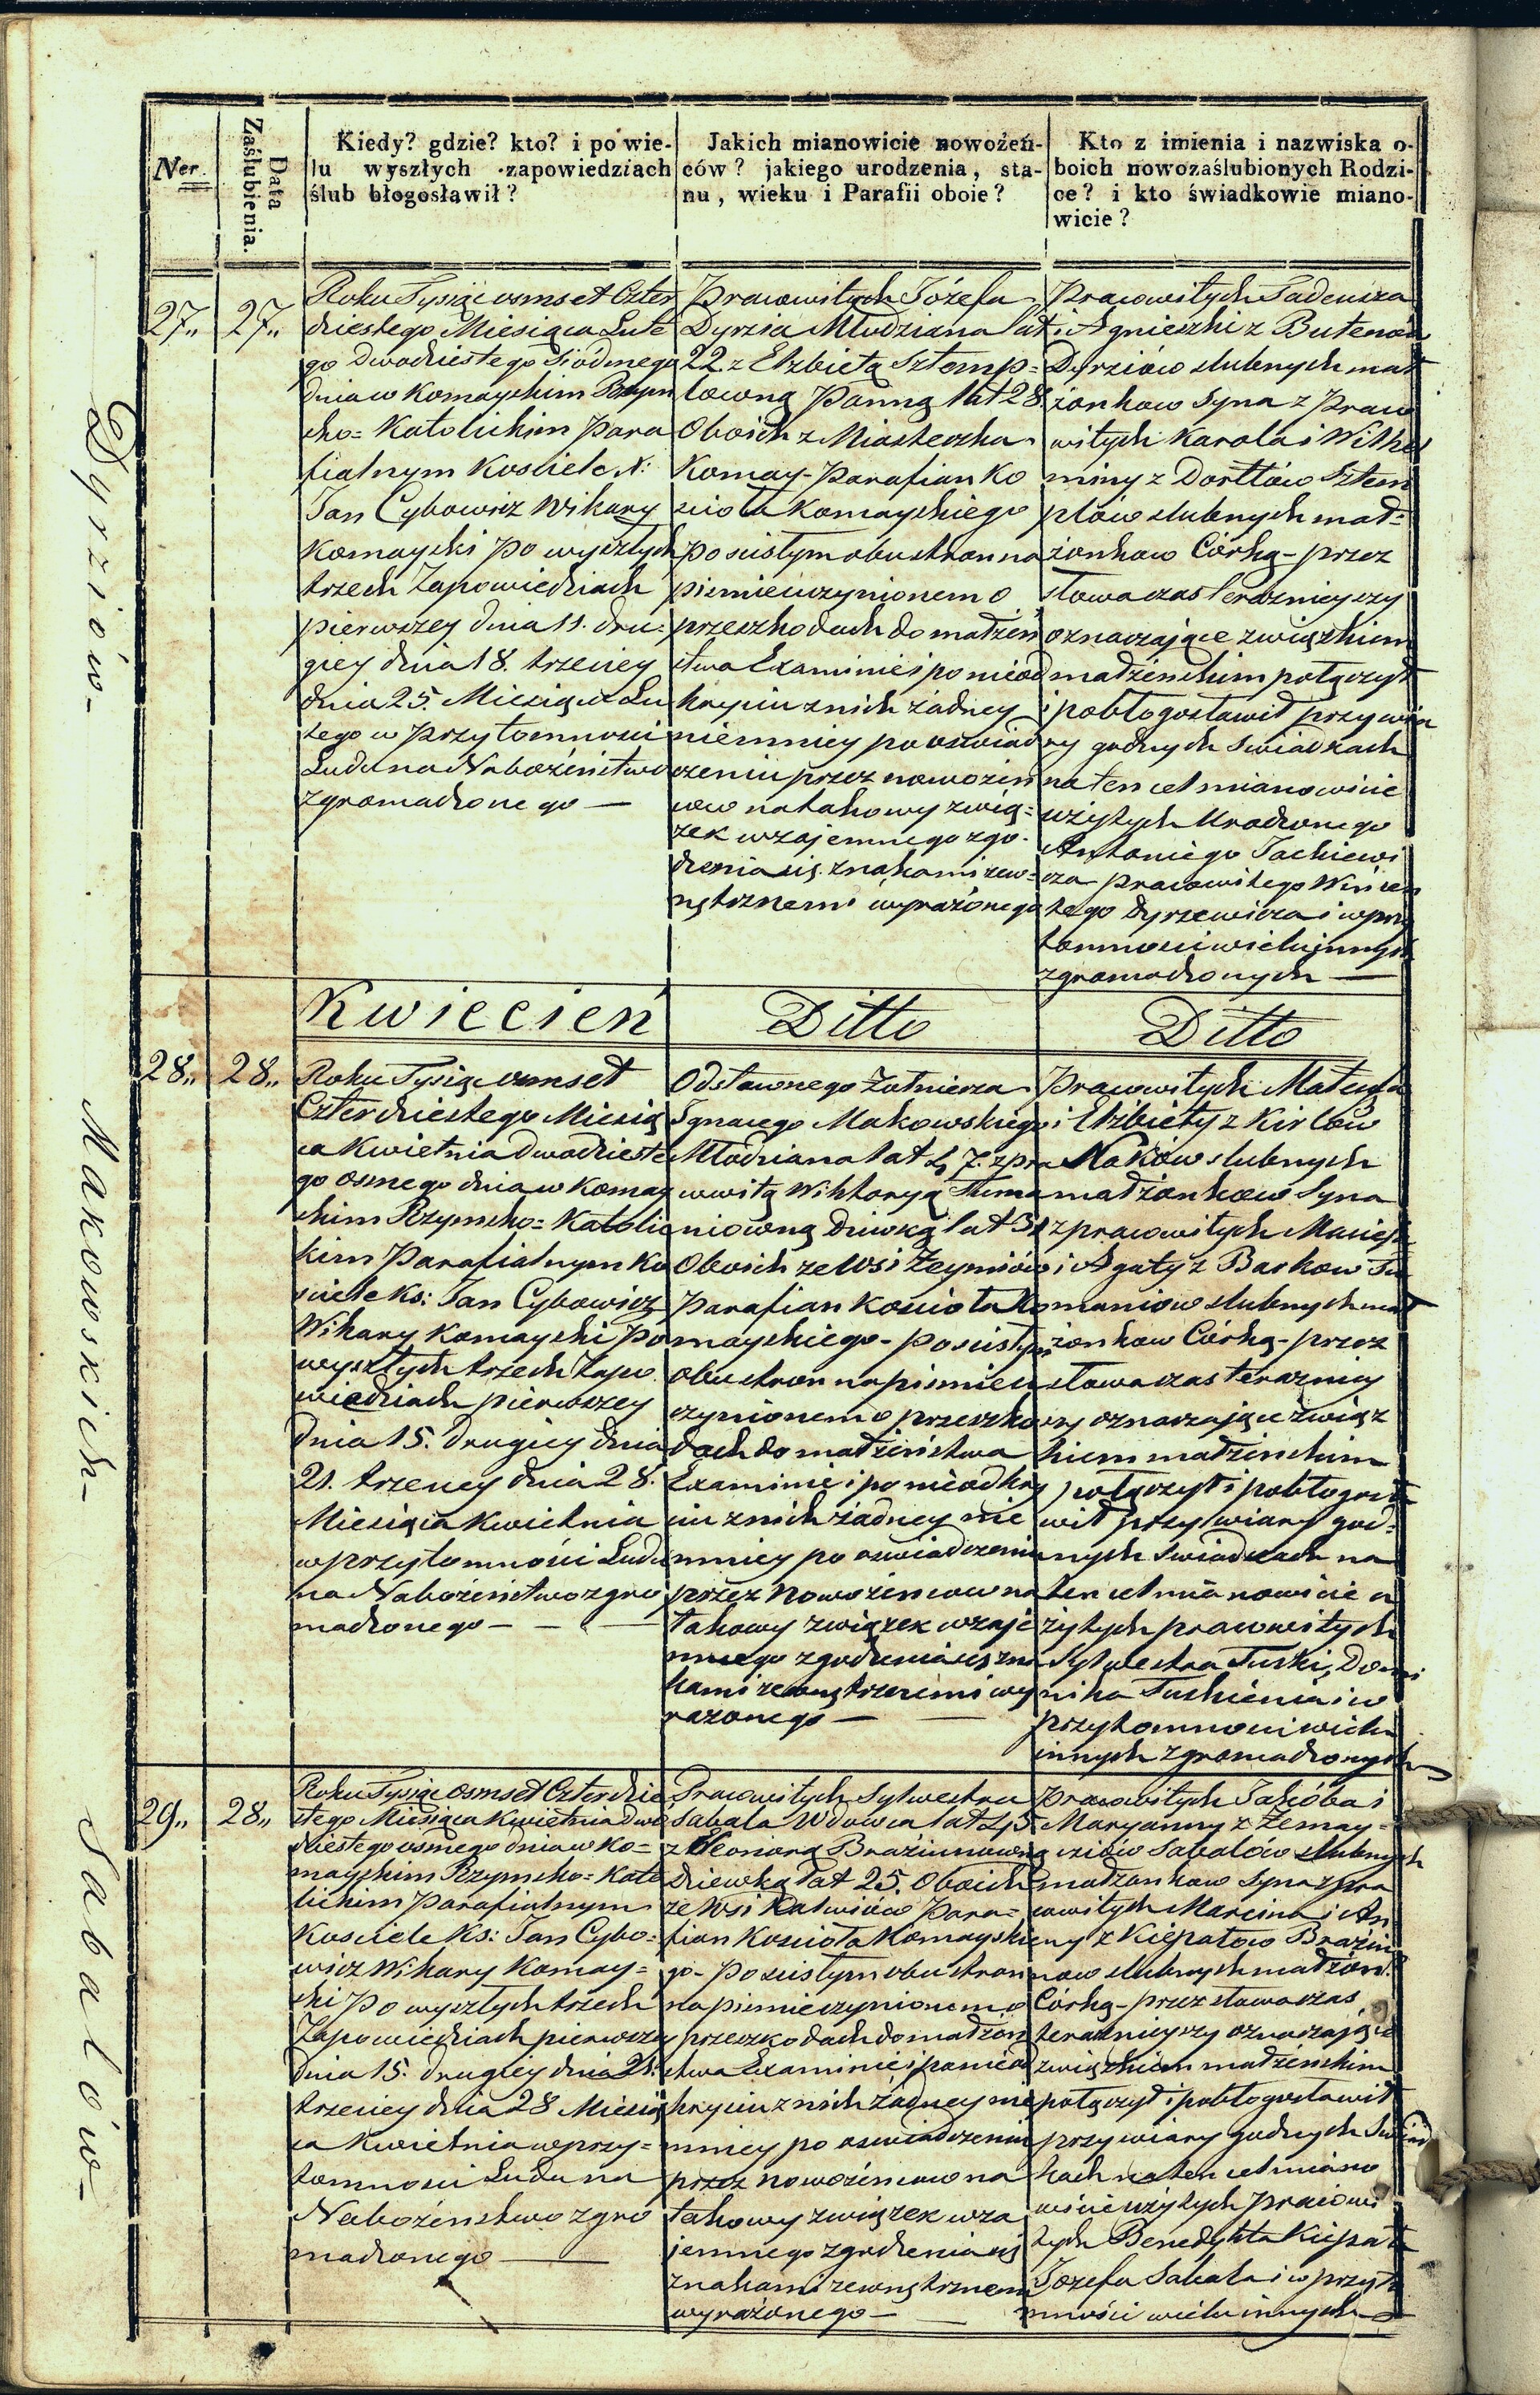 Ner.
Data
Zaślubienia.
Kiedy? gdzie? kto? i po wie-
lu wyszłych zapowiedziach
ślub błogosławił?
Jakich mianowicie nowożeń-
ców? jakiego urodzenia, sta-
nu, wieku i Parafii oboie?
Kto z imienia i nazwiska o-
boich nowozaślubionych Rodzi-
ce? i kto świadkowie miano-
wicie?
Dyrziów-
27„
27„
Roku Tysiąc osmset Czter
dziestego Miesiąca Lute
go dwudziestego Siódmego
dnia w Komayskim Rzym
sko= Katolickim Para
fialnym Kosciele X:
Jan Cybowicz Wikary
Komayski po wyszłych
trzech Zapowiedziach
pierwszey dnia 11. dru=
giey dnia 18. trzeciey
dnia 25. Miesiąca Lu
tego w przytomnosci
Ludu na Nabożeństwo
zgromadzonego —
Pracowitych Józefa
Dyrzia Młodziana lat
22. z Elzbietą Sztemp=
lowną Panną lat 28.
Oboich z Miasteczka
Komay- Parafian Ko
scioła Komayskiego
po scisłym obustron na
pismie uczynionem o
przeszkodach do małżeń
stwa Examinie i po nieod
kryciu z nich żadney
niemniey po oswiad
czeniu przez nowożeń
cow na takowy zwią=
zek wzajemnego zgo-
dzenia się znakami zew=
nętrznemi wyrażonego
Pracowitych Tadeusza
i Agnieszki z Butenów
Dyrziów slubnych mał
żonkow Syna z Praco
witych Karola i Wilhel
miny z Dorttów Sztem
plów slubnych mał=
żonkow Córką- przez
słowa czas teraznieyszy
oznaczające związkiem
małżenskim połączył
i pobłogosławił przy wia
ry godnych Swiadkach
na ten cel mianowicie
użytych Urodzonego
Antoniego Jackiewi
cza pracowitego Wincen
tego Dyrzewicza i w przy
tomnosci wielu innych
zgromadzonych —
Kwiecień
Ditto
Ditto
Makowskich-
28„
28„
Roku Tysiąc osmset
Czterdziestego Miesią
ca Kwietnia dwudzieste
go osmego dnia w Komay
skim Rzymsko= Katolic
kim Parafialnym Ko
sciele Ks: Jan Cybowicz
Wikary Komayski po
wyszłych trzech Zapo
wiedziach pierwszey
dnia 15. drugiey dnia
21. trzeciey dnia 28.
Miesiąca Kwietnia
w przytomności Ludu
na Nabożeństwo zgro
madzonego — — —
Odstawnego Żołnierza
Ignacego Makowskiego
Młodziana lat 47. z pra
cowitą Wiktoryą Tuma
niowną Dziewką lat 31
Oboich ze Wsi Żeymiów
Parafian Koscioła Ko
mayskiego- po scisłym
obustron na pismie u
czynionem o przeszko
dach do małżeństwa
Examinie i po nieodkry
ciu z nich żadney nie
mniey po oswiadczeniu
przez Nowożencow na
takowy związek wzaje
mnego zgodzenia się zna
kami zewnętrznemi wy
rażonego — —
Pracowitych Mateusza
i Elżbiety z Kirlow
Maków slubnych
małżonkow Syna
z pracowitych Macieja
i Agaty z Barkow Tu
maniow slubnych mał
żonkow Córką- przez
słowa czas teraźniey
szy oznaczające związ
kiem małżenskim
połączył i pobłogosła
wił przy wiary god=
nych Swiadkach na
ten cel mianowicie u
żytych pracowitych
Sylwestra Tuski, Domi
nika Tuskienia i w
przytomnosci wielu
innych zgromadzonych
Sabalów-
29„
28„
Roku Tysiąc Osmset Czterdzie
stego Miesiąca Kwietnia dwu
dziestego osmego dnia w Ko=
mayskim Rzymsko= Kato
lickim Parafialnym
Kosciele Ks: Jan Cybo=
wicz Wikary Komay=
ski po wyszłych trzech
Zapowiedziach pierwszey
dnia 15. drugiey dnia 21.
trzeciey dnia 28 Miesią
ca Kwietnia w przy=
tomnosci Ludu na
Nabożeństwo zgro
madzonego —
Pracowitych Sylwestra
Sabala Wdowca lat 45
z Eleonorą Braziunowną
Dziewką lat 25. Oboich
ze Wsi Para=
fian Koscioła Komayskie
go- Po scisłym obustron
na pismie czynionem o
przeszkodach do małżeń
stwa Examinie i po nieod
kryciu z nich żadney nie
mniey po oswiadczeniu
przez nowożencow na
takowy związek wza
jemnego zgodzenia się
znakami zewnętrznemi
wyrażonego — —
Pracowitych Jakóba i
Maryanny z Żemay=
cziów Sabalów slubnych
małżonkow Syna z pra
cowitych Marcina i An
ny z Kiepałow Braziu
now slubnych małżon
Córką- przez słowa czas
teraznieyszy oznaczające
związkiem małżenskim
połączył i pobłogosławił
przy wiary godnych Swiad
kach na ten cel miano
wicie użytych pracowi
tych Benedykta Kiepała
Jozefa Sabala i w przyto
mności wielu innych —